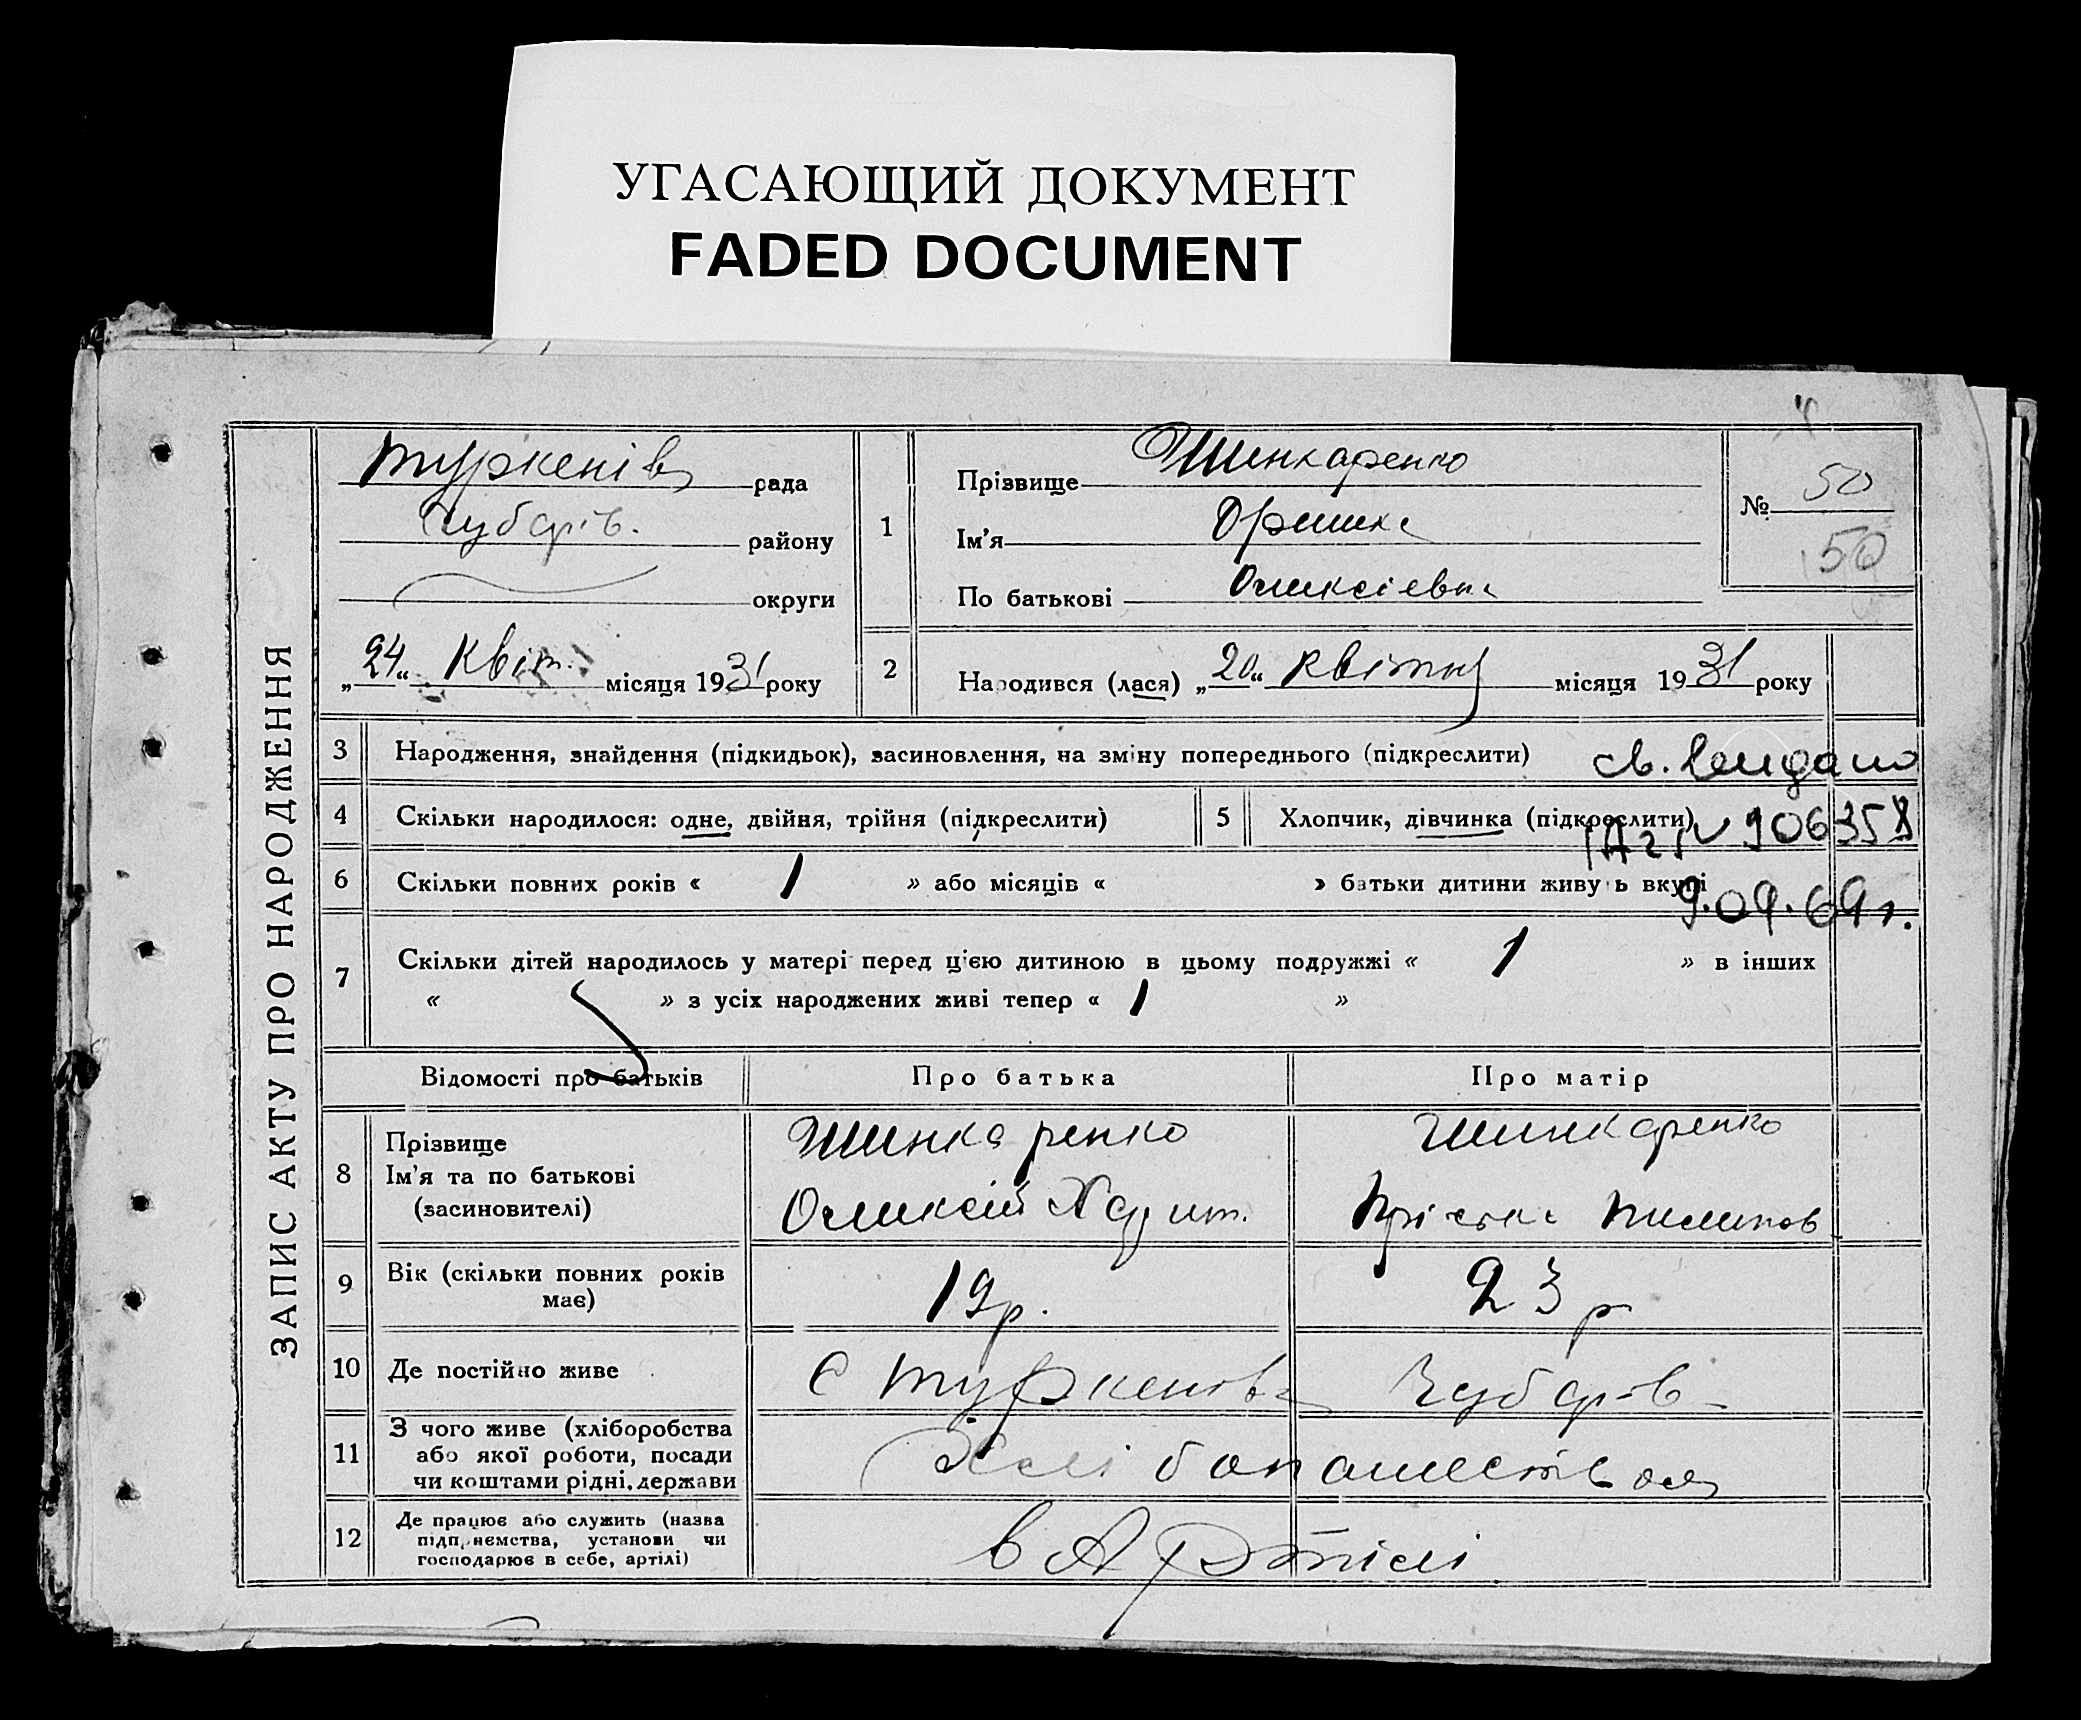 УГАСАЮЩИЙ ДОКУМЕНТ
FADED DOCUMENT
ЗАПИС АКТУ ПРО НАРОДЖЕННЯ
Туркенів рада
Чубарів. району
округи
„24“ Квіт. місяця 1931 року
1
Прізвище Шинкаренко
Ім'я Оришка
По батькові Олексіевна
№ 50
50
2
Народився (лася) „20“ квітня місяця 1931 року
3 Народження, знайдення (підкидьок), засиновлення, на зміну попереднього (підкреслити)
св. выдано
4 Скільки народилося: одне, двійня, трійня (підкреслити) 5 Хлопчик, дівчинка (підкреслити)
№ 906358
6 Скільки повних років « 1 » або місяців « » батьки дитини живуть вкупі
9.09.69 г.
7 Скільки дітей народилось у матері перед цією дитиною в цьому подружжі « 1 » в інших
« » з усіх народжених живі тепер « 1 »
Відомості про батьків Про батька Про матір
8 Прізвище
Ім'я та по батькові
(засиновителі)
Шинкаренко
Олексій Харит.
Шинкаренко
Пилипов
9 Вік (скільки повних років
має)
19 р.
23 р
10 Де постійно живе
с Туркенівка Чубарів
11 З чого живе (хліборобства
або якої роботи, посади
чи коштами рідні, держави
Хлібопашеством
12 Де працює або служить (назва
підприємства, установи чи
господарює в себе, артілі)
в Артілі